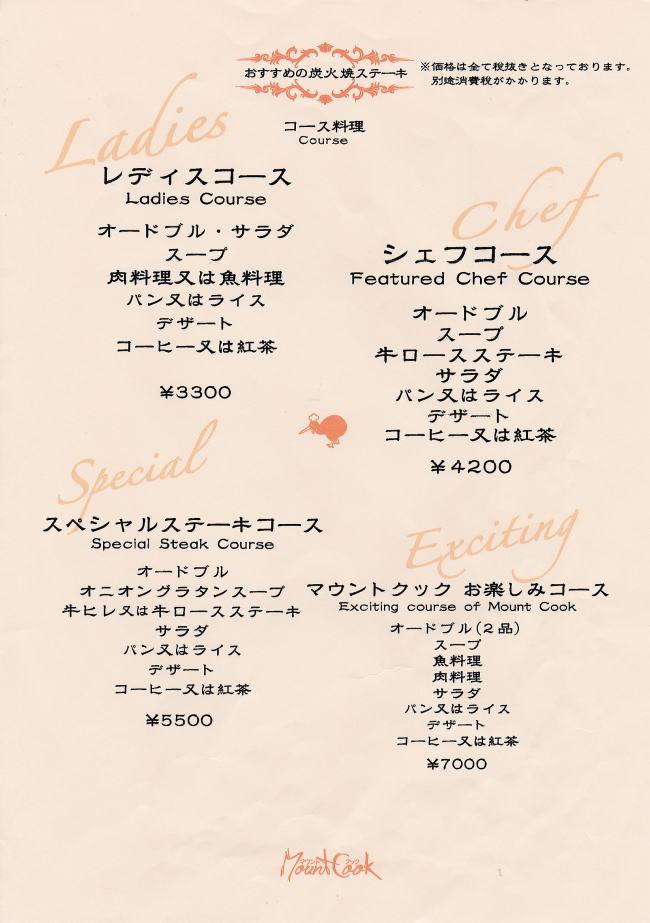 おすすめの炭火焼ステーキ
※価格は全て税抜きとなっております。
別途消費税がかかります。
コース料理
Course
Ladies
レディスコース
Ladies Course
オードブル・サラダ
スープ
肉料理又は魚料理
パン又はライス
デザート
コーヒー又は紅茶
¥3300
Chef
シェフコース
Featured Chef Course
オードブル
スープ
牛ロースステーキ
サラダ
パン又はライス
デザート
コーヒー又は紅茶
¥4200
Special
スペシャルステーキコース
Special Steak Course
オードブル
オニオングラタンスープ
牛ヒレ又は牛ロースステーキ
サラダ
パン又はライス
デザート
コーヒー又は紅茶
¥5500
Exciting
マウントクック お楽しみコース
Exciting course of Mount Cook
オードブル(2品)
スープ
魚料理
肉料理
サラダ
パン又はライス
デザート
コーヒー又は紅茶
¥7000
マウント クック
Mount Cook